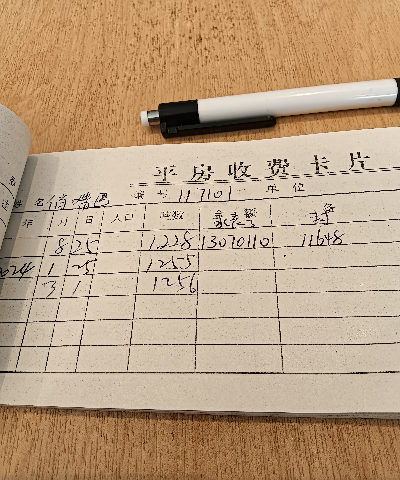 平房收费卡片
姓名 编号 117101 单位
年 月 日 人口 吨数 水表号 封号
8 25 1228 13070110 11648
2024 1 25 1255
3 1 1256